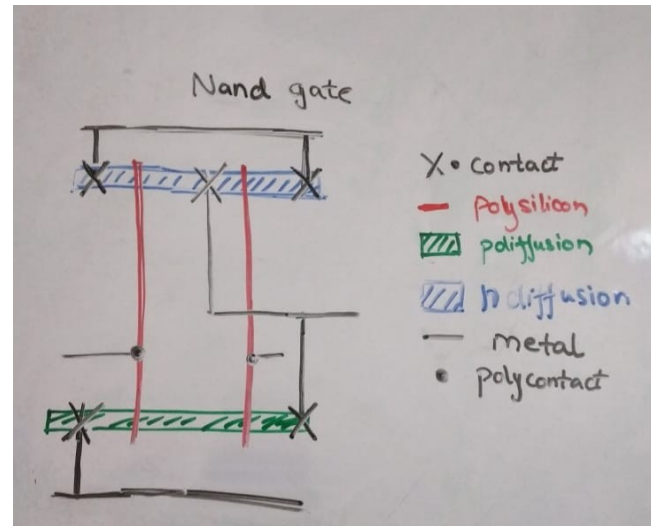 Nand gate
X • contact
polysilicon
pdiffusion
n diffusion
metal
polycontact